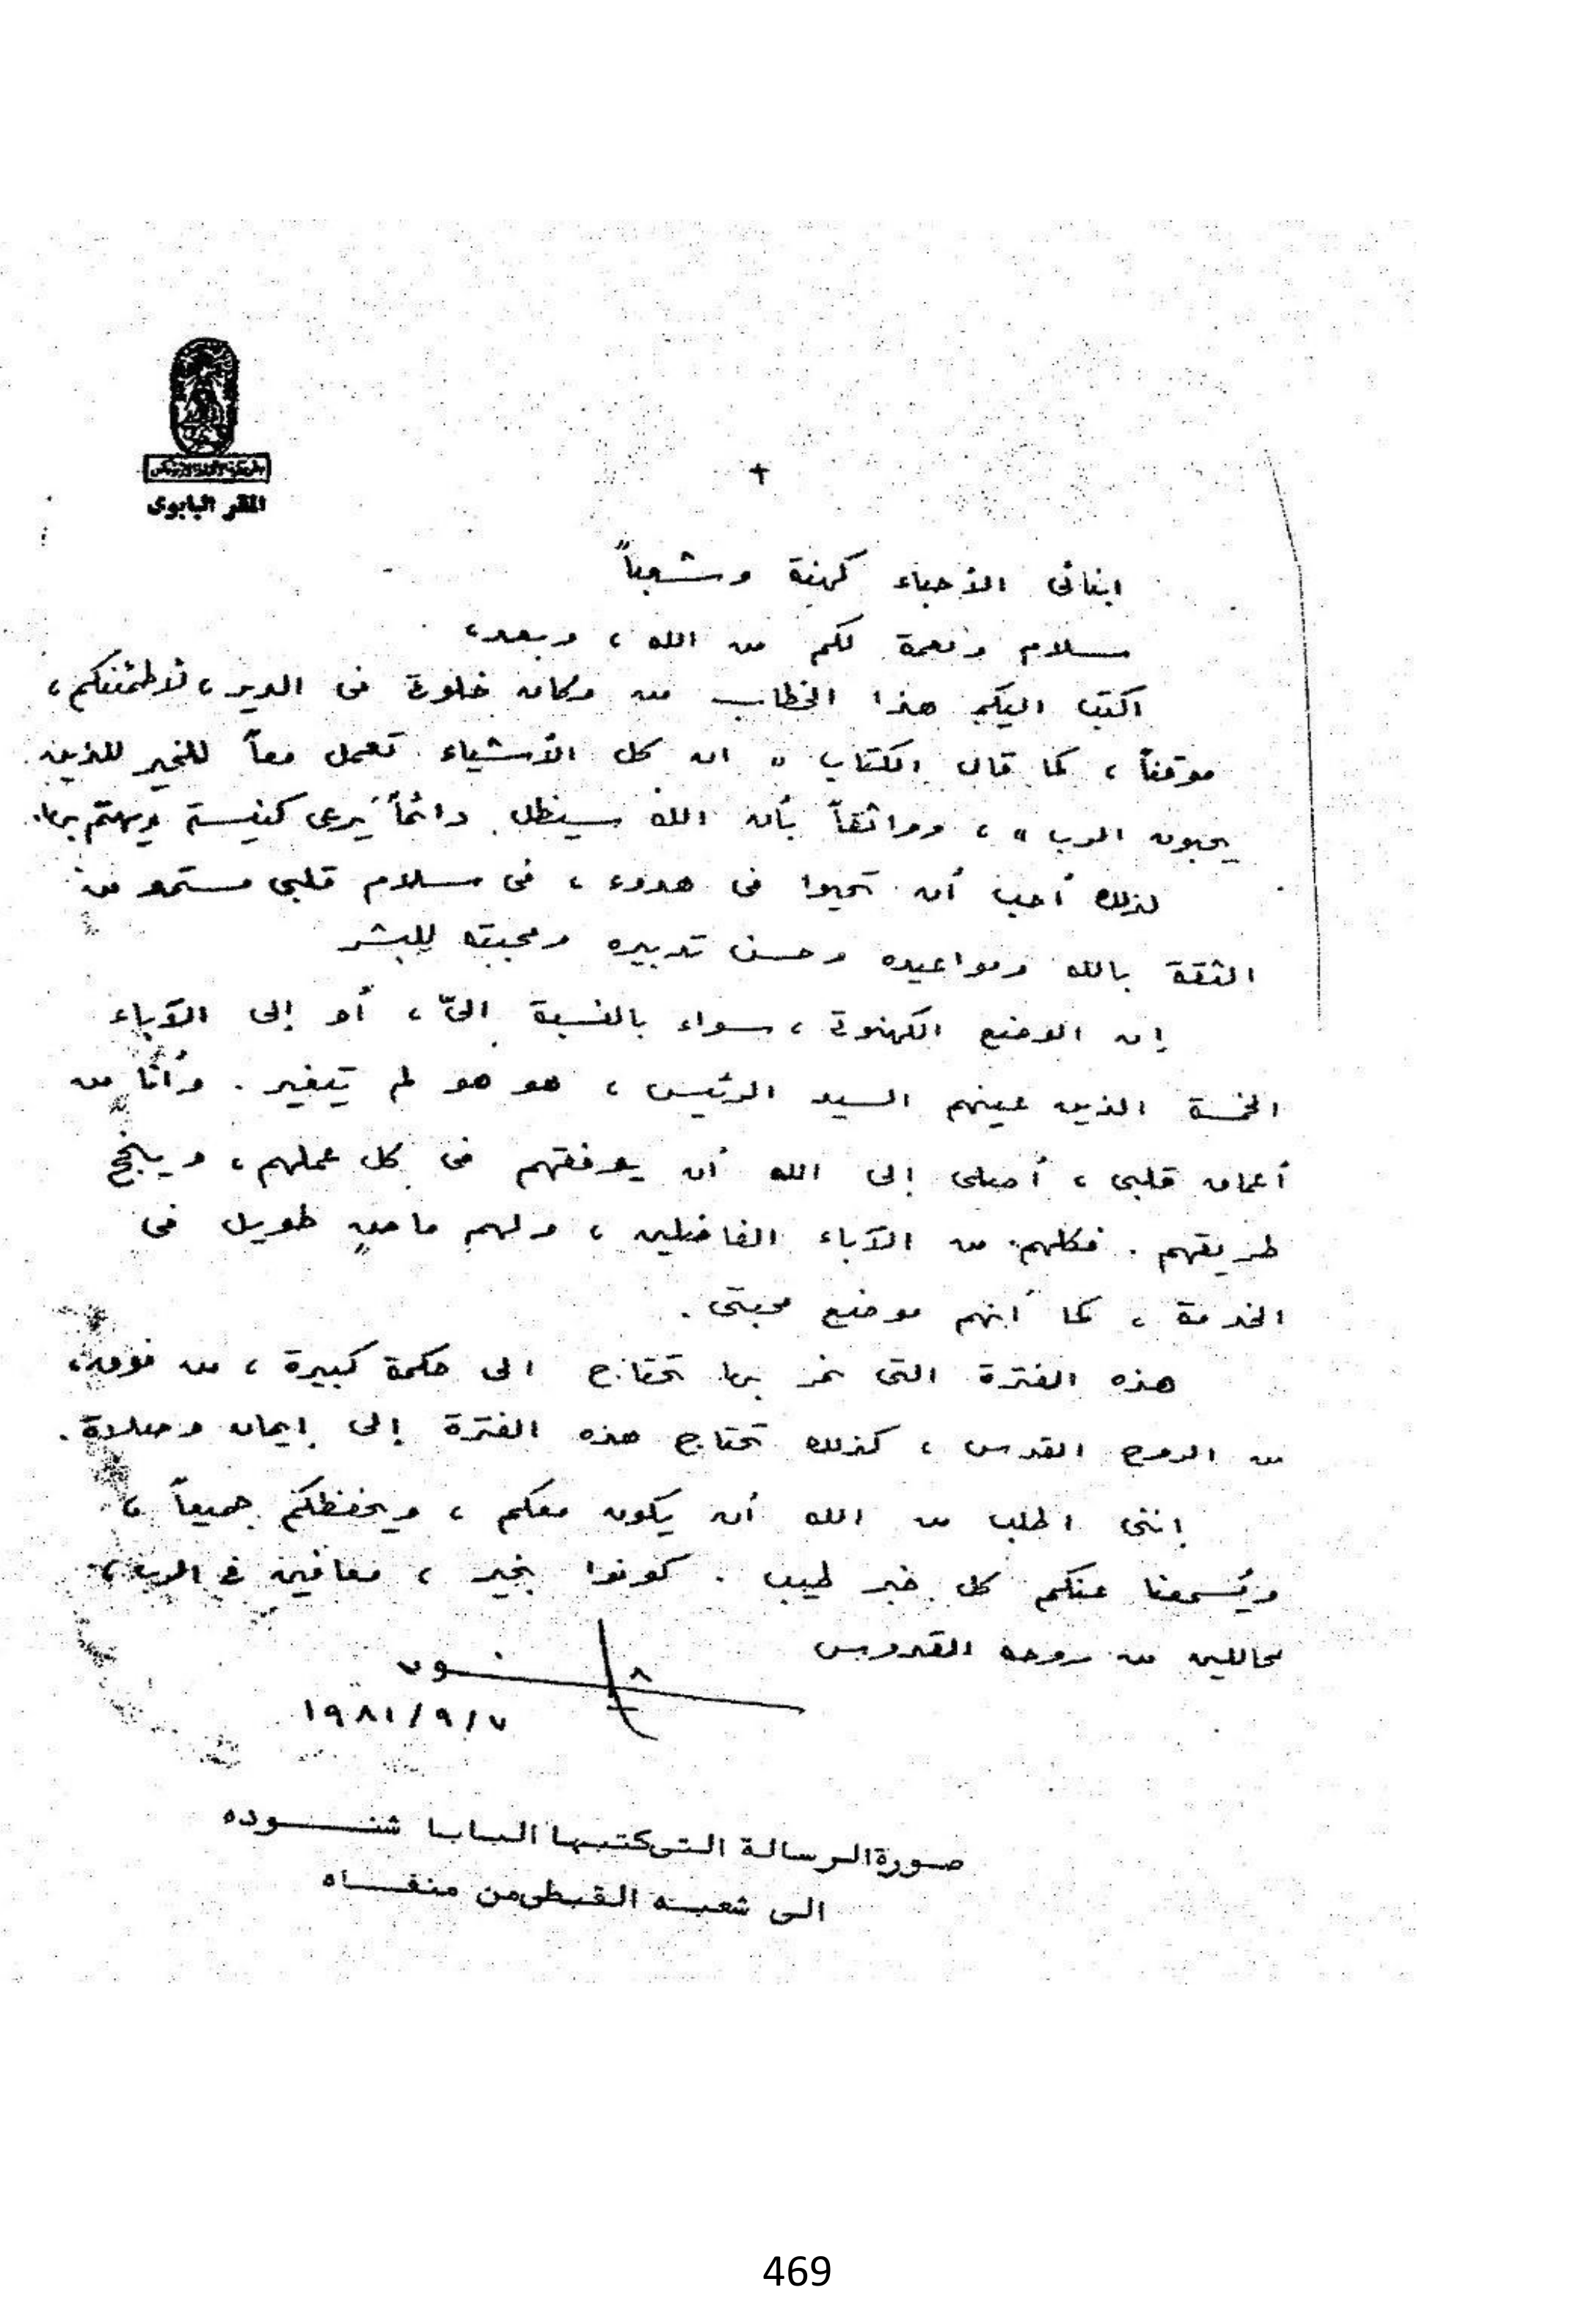 المقر البابوى
+
ابنائى الأحباء كهنة وشعباً
سلام ونعمة لكم من الله ، وبعد ،
اكتب اليكم هذا الخطاب من مكان خلوتى فى الدير ، لأطمئنكم ،
موقناً ، كما قال الكتاب " ان كل الأشياء تعمل معاً للخير للذين
يحبون الرب " ، وواثقاً بأن الله سيظل دائماً يرعى كنيسته ويهتم بها .
لذلك أحب أن تحيوا فى هدوء ، فى سلام قلبى مستمد من
الثقة بالله ومواعيده وحسن تدبيره ومحبته للبشر
إن الوضع الكهنوتى ، سواء بالنسبة الىّ ، أو إلى الآباء
الخمسة الذين عينهم السيد الرئيس ، هو هو لم يتغير . وأنا من
أعماق قلبى ، أصلى إلى الله أن يوفقهم فى كل عملهم ، وينجح
طريقهم . فكلهم من الآباء الفاضلين ، ولهم ماضٍ طويل فى
الخدمة ، كما أنهم موضع محبتى .
هذه الفترة التى نمر بها تحتاج الى حكمة كبيرة ، من فوق ،
من الروح القدس ، كذلك تحتاج هذه الفترة إلى إيمان وصلاة .
إننى اطلب من الله أن يكون معكم ، ويحفظكم جميعاً ،
ويُسمعنا عنكم كل خبر طيب . كونوا بخير ، معافين فى الرب ،
محاللين من روحه القدوس
١٩٨١/٩/٧
صورة الرسالة التى كتبها البابا شنوده
الى شعبه القبطى من منفاه
469